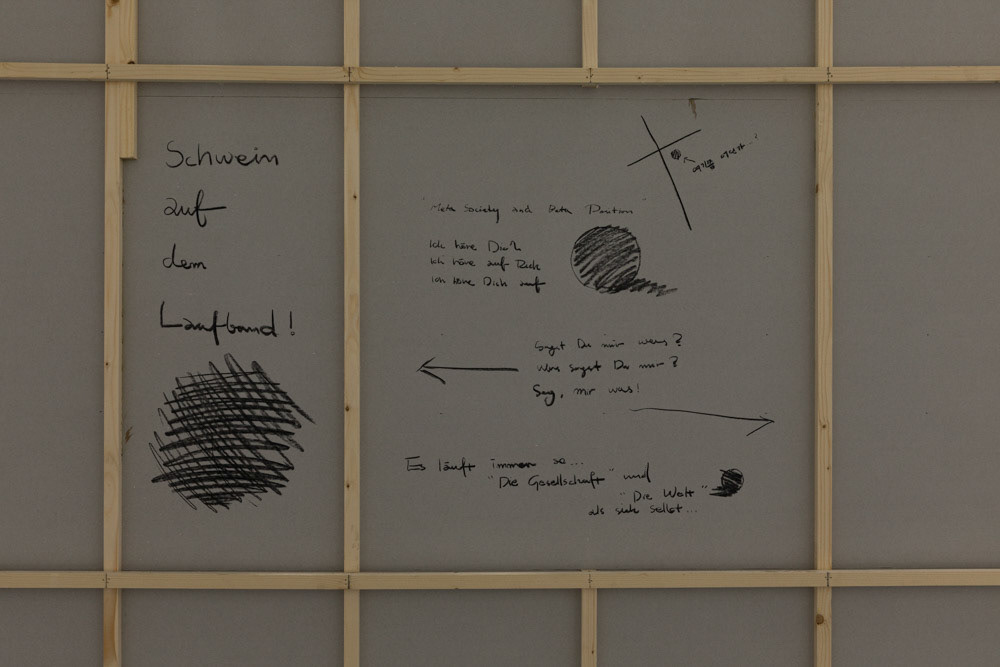 Schwein
auf
dem
Laufband!
Meta Society and Data
Ich höre Dich
Ich höre auf Dich
Ich höre Dich auf
Sagst Du mir was?
Was sagst Du mir?
Sag, mir was!
Es läuft immer so...
"Die Gesellschaft" und
"Die Welt"
als sich selbst...